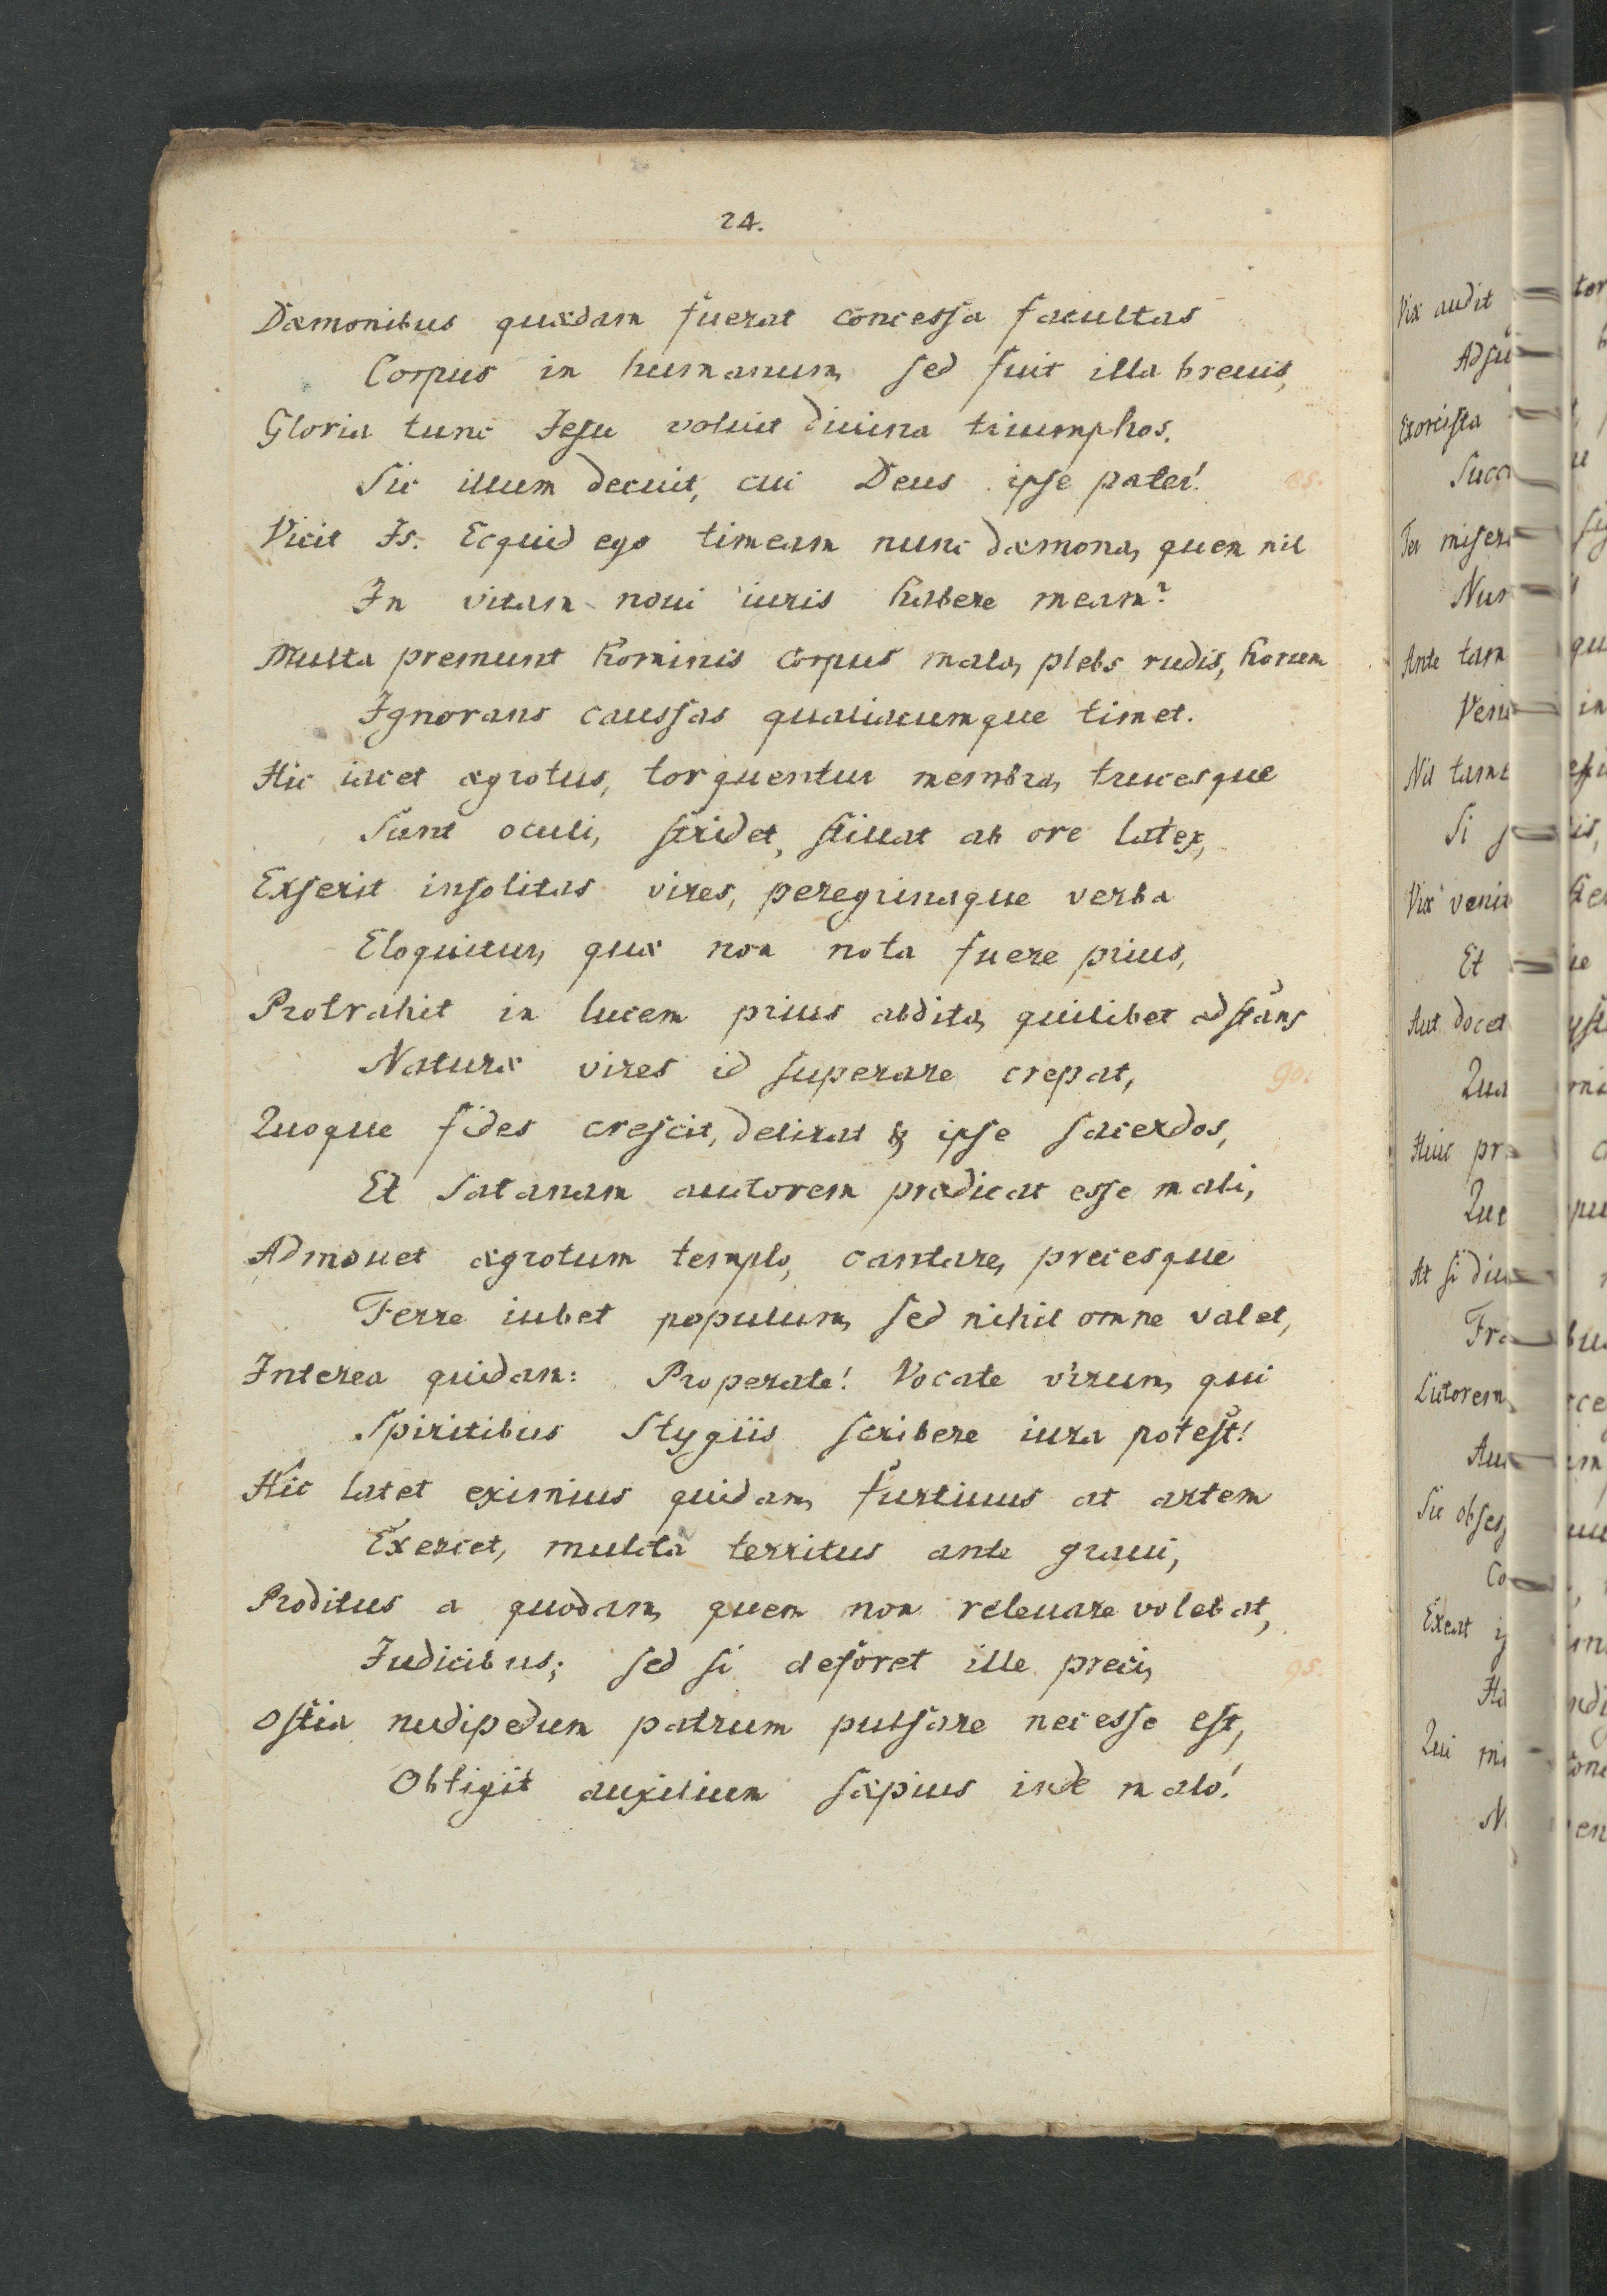 24.
Dæmonibus quædam fuerat concessa facultas
Corpus in humanum, sed fuit illa breuis,
Gloria tunc Jesu voluit diuina triumphos,
Sic illum decuit, cui Deus ipse pater!
85.
Vicit Is. Ecquid ego timeam nunc dæmona, quem nil
In vitam noui iuris habere meam?
Multa premunt hominis corpus mala, plebs rudis, horum
Ignorans caussas qualiacumque timet.
Hic iacet ægrotus, torquentur membra, trucesque
Sunt oculi, stridet, stillat ab ore latex,
Exserit insolitas vires, peregrinaque verba
Eloquitur, quæ non nota fuere prius,
Protrahit in lucem prius abdita, quilibet adstans
Naturæ vires id superare crepat,
90.
Quoque fides crescit, delirat & ipse sacerdos,
Et Satanam autorem prædicat esse mali,
Admouet ægrotum templo, cantare, precesque
Ferre iubet populum, sed nihil omne valet,
Interea quidam: Properate! Vocate virum, qui
Spiritibus Stygiis scribere iura potest!
Hic latet eximius quidam, furtiuus at artem
Exercet, mulcta territus ante graui,
Proditus a quodam, quem non releuare volebat,
Iudicibus; sed si desoret ille preci,
95.
Ostia nudipedum patrum pulsare necesse est,
Obtigit auxilium sæpius inde malo!
Vix audit
Exorcista
Ante tam
Aut docet
Et
Si